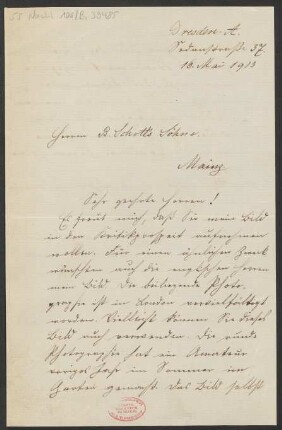 Dresden-A.
Sedanstrasse 37
18. Mai 1913
Herren B. Schott's Söhne
Mainz.
Sehr geehrte Herren!
Es freut mich, daß Sie mein Bild
in den aufnehmen
wollen. Für einen ähnlichen Zweck
wünschten auch die englischen Herren
mein Bild. Die beiliegende Photo-
graphie ist in London vervielfältigt
worden. Vielleicht können Sie dieses
Bild auch verwenden. Die
Photographie hat ein Amateur
voriges Jahr im Sommer im
Garten gemacht. Das Bild selbst